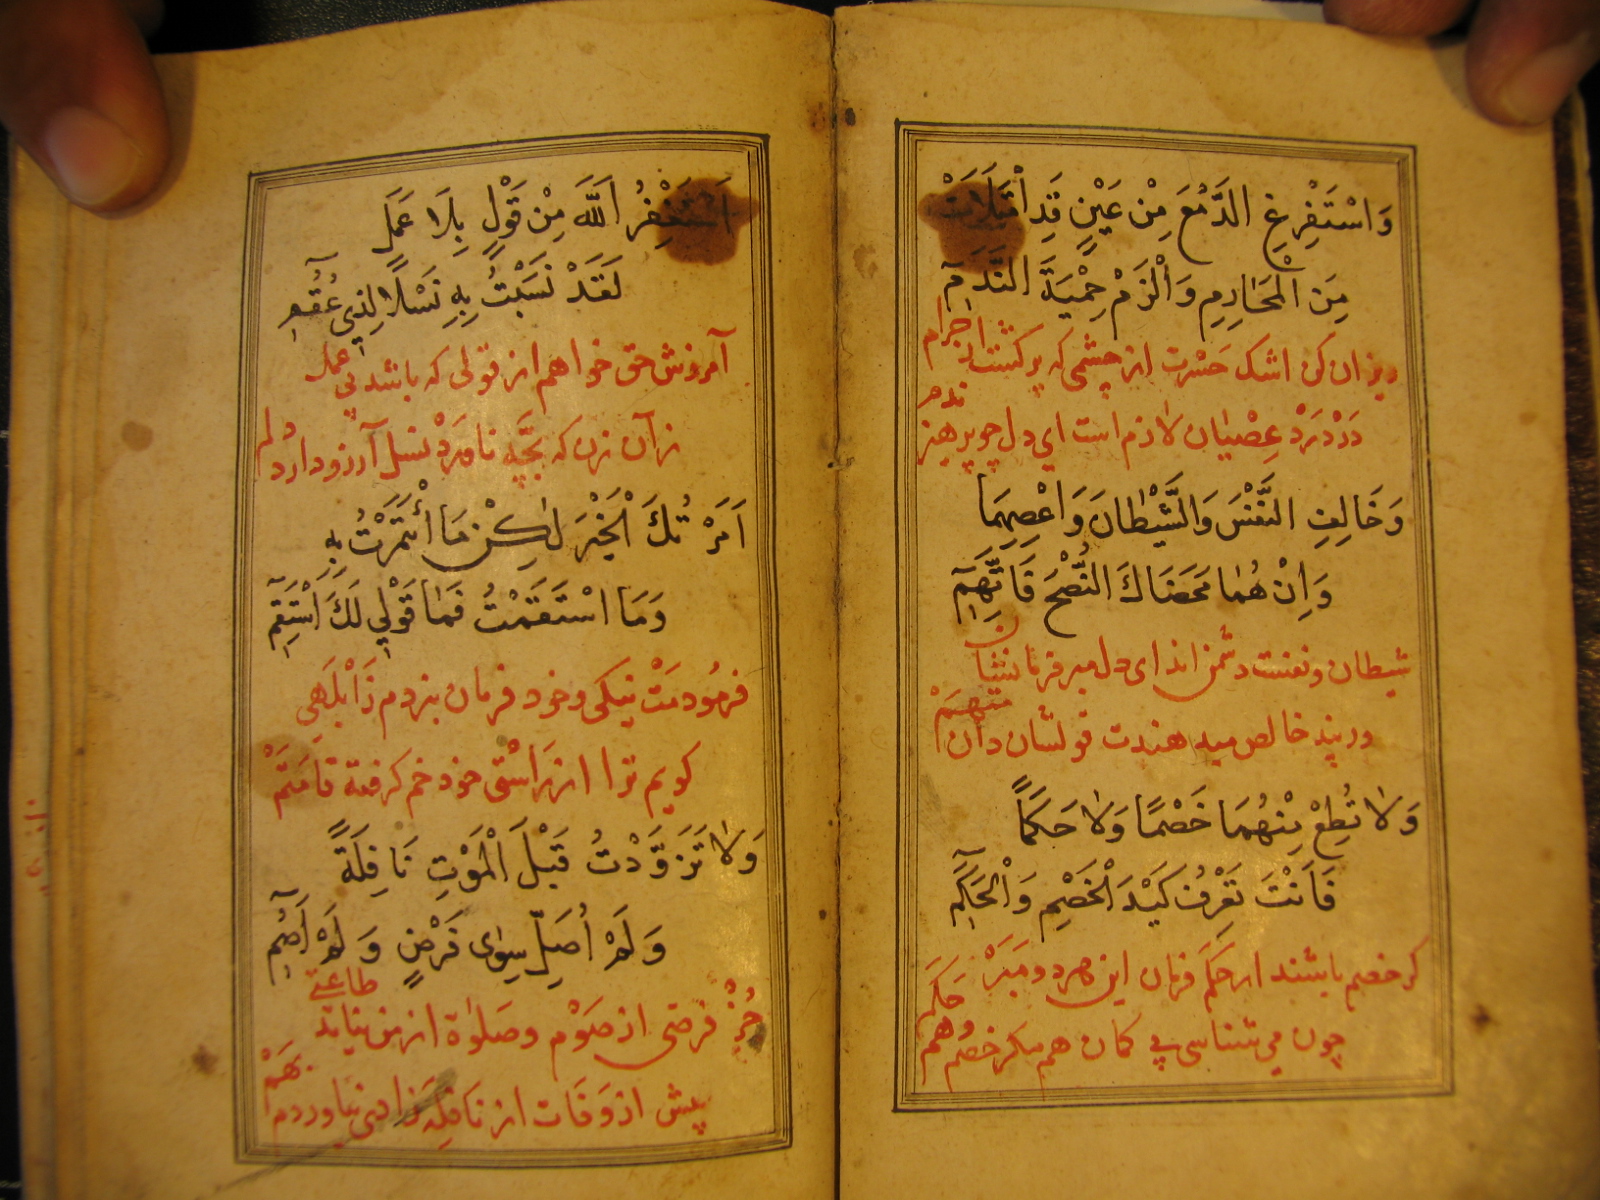 وَاسْتَفْرِغِ الدَّمْعَ مِنْ عَيْنٍ قَدِ امْتَلَاَتْ
مِنَ الْمَحَارِمِ وَالْزَمْ حِمْيَةَ النَّدَمِ
ريزان كن اشك حسرت از چشمى كه پر كشت از اجرام
دَرْدِ عِصْيَان لازم است اى دل چو پرهيز ندم
وَخَالِفِ النَّفْسَ وَالشَّيْطَانَ وَاعْصِهِمَا
وَاِنْ هُمَا مَحَضَاكَ النُّصْحَ فَاتَّهِمِ
شيطان و نفست دشمن اند اى دل مبر فرمانشان
ور پند خالص ميدهندت قولشان دان متهم
وَلَا تُطِعْ مِنْهُمَا خَصْمًا وَلَا حَكَمًا
فَاَنْتَ تَعْرِفُ كَيْدَ الْخَصْمِ وَالْحَكَمِ
كر خصم باشند ار حكم فرمان اين هر دو مبر
چون مى شناسى بى كمان هم مكر خصم و هم حَكَم
اَسْتَغْفِرُ اللهَ مِنْ قَوْلٍ بِلَا عَمَلٍ
لَقَدْ نَسَبْتُ بِهِ نَسْلًا لِذِى عُقُمِ
آمرزش حق خواهم از قولى كه باشد بى عمل
زآن زن كه بچّه نامرد نسل آرزو دارد دلم
اَمَرْتُكَ الْخَيْرَ لٰكِنْ مَا أْتَمَرْتُ بِهِ
وَمَا اسْتَقَمْتُ فَمَا قَوْلِى لَكَ اسْتَقِمِ
فرمودمت نيكى و خود فرمان نبردم ز ابلهى
كويم ترا از راستى خود خم كرفته قامتم
وَلَا تَزَوَّدْتُ قَبْلَ الْمَوْتِ نَافِلَةً
وَلَمْ اُصَلِّ سِوٰى فَرْضٍ وَلَمْ اَصُمِ
جُزْ فرضى از صَوْم و صَلوٰة از من نيايد طاعتى
پيش از وَفَات از نافله زادى نياوردم بهم